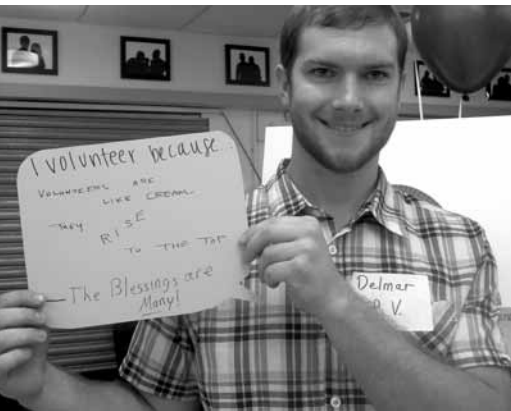 I volunteer because
VOLUNTEERS ARE
LIKE CREAM
THEY RISE
TO THE TOP
The Blessings are
Many!
Delmar
V.